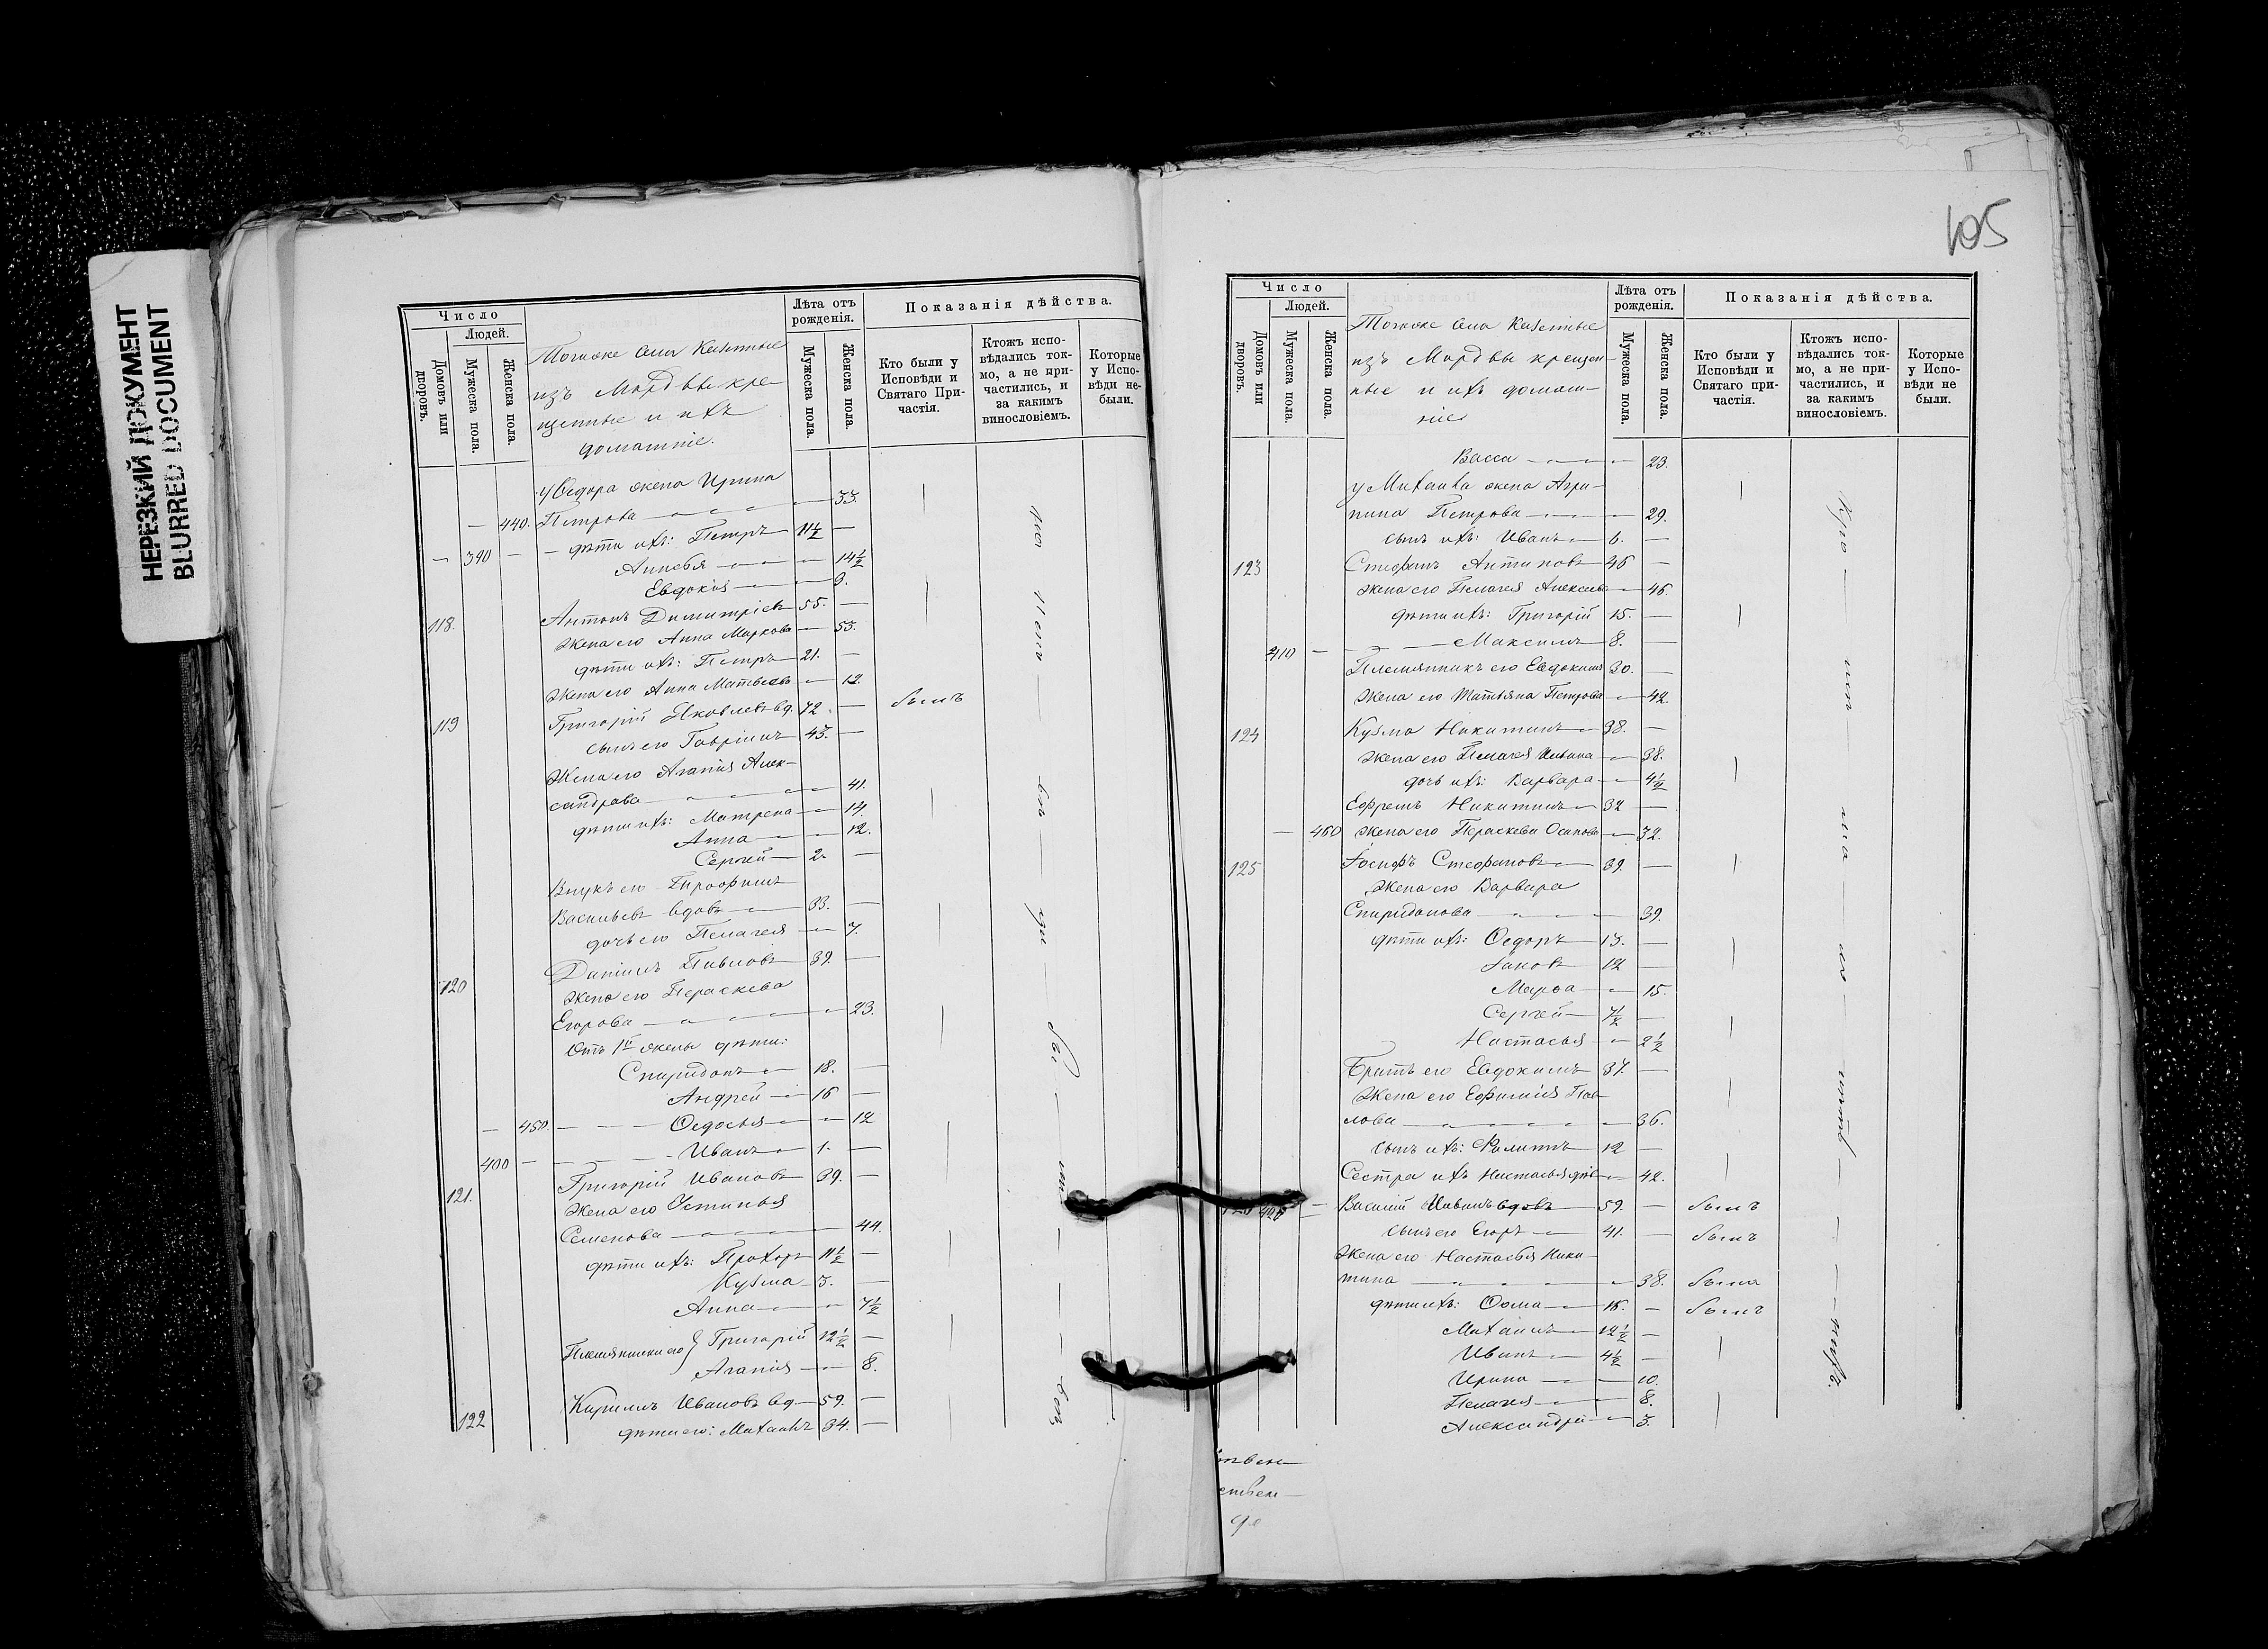 НЕРЕЗКИЙ ДОКУМЕНТ
BLURRED DOCUMENT
Число
Людей.
Домовъ или дворовъ.
Мужеска пола.
Женска пола.
Тогоже села Казенные
изъ Мордвы кре-
щенные и ихъ
домашніе.
Лѣта отъ рожденія.
Мужеска пола.
Женска пола.
Показанія дѣйства.
Кто были у Исповѣди и Святаго При-частія.
Ктожъ испо-вѣдались ток-мо, а не при-частились, и за какимъ винословіемъ.
Которые у Испо-вѣди не-были.
У Ѳедора жена Ирина
— 440. Петрова — 33.
— 390 — — дѣти ихъ: Петръ 11½ —
Аннсья — 14½
Евдокія — 9.
118. Антонъ Димитріевъ 55. —
Жена его Анна Маркова — 53.
дѣти ихъ: Петръ 21. —
Жена его Анна Матвеева — 12.
119 Григорій Яковлевъ вд. 72. — былъ
сынъ его Гавріилъ 43. —
Жена его Агапія Алек-
сандрова — 41.
дѣти ихъ: Матрена — 14.
Анна — 12.
Сергей 2. —
Внукъ его
Васильевъ вдовъ 33. —
дочь его Пелагея — 7.
120 Даніилъ Павловъ 39. —
Жена его Параскева
Егорова — 23.
Отъ 1й жены дѣти:
Спиридонъ 18. —
Андрей 16 —
— 450. — Ѳедосья — 12
400 — Иванъ 1. —
121. Григорій Ивановъ 39. —
Жена его Устинья
Семенова — 44.
дѣти ихъ: Прохоръ 11½ —
Кузма 3. —
Анна — 7½
Племянники его } Григорій 12½ —
Агапія — 8.
122 Кириллъ Ивановъ вд. 59. —
дѣти его: Михаилъ 34. —
105
Число
Людей.
Домовъ или дворовъ.
Мужеска пола.
Женска пола.
Тогоже села Казенные
изъ Мордвы крещен-
ные и ихъ домаш-
ніе
Лѣта отъ рожденія.
Мужеска пола.
Женска пола.
Показанія дѣйства.
Кто были у Исповѣди и Святаго при-частія.
Ктожъ испо-вѣдались ток-мо, а не при-частились, и за какимъ винословіемъ.
Которые у Испо-вѣди не были.
Васса — 23.
у Михаила жена Агри-
пина Петрова — 29.
сынъ ихъ: Иванъ 6. —
123 Стефанъ Антиповъ 46 —
Жена его Пелагея Алексеева — 46.
дѣти ихъ: Григорій 15. —
410 — Максимъ 8. —
Племянникъ его Евдокимъ 30. —
Жена его Татьяна Петрова — 42.
124 Кузма Никитинъ 38. —
Жена его Пелагея Иванова — 38.
дочь ихъ: Варвара — 4½
Ефремъ Никитинъ 32 —
— 460 Жена его Параскева Осипова — 32.
125 Іосифъ Стефановъ 39. —
Жена его Варвара
Спиридонова — 39.
дѣти ихъ: Ѳедоръ 13. —
Іаковъ 12 —
Марѳа — 15.
Сергей 7½ —
Настасья — 2½
Братъ его Евдокимъ 37. —
Жена его Ефимія Пав-
лова — 36.
сынъ ихъ: Филиппъ 12 —
Сестра ихъ Настасья дѣв. — 42.
— Василій Ивановъ вдовъ 59. — былъ
сынъ его Егоръ 41. — былъ
Жена его Настасья Ники-
тина — 38. была
дѣти ихъ: Ѳома 18. — былъ
Михаилъ 12½ —
Иванъ 4½ —
Ирина — 10.
Пелагея — 8.
Александра — 3.